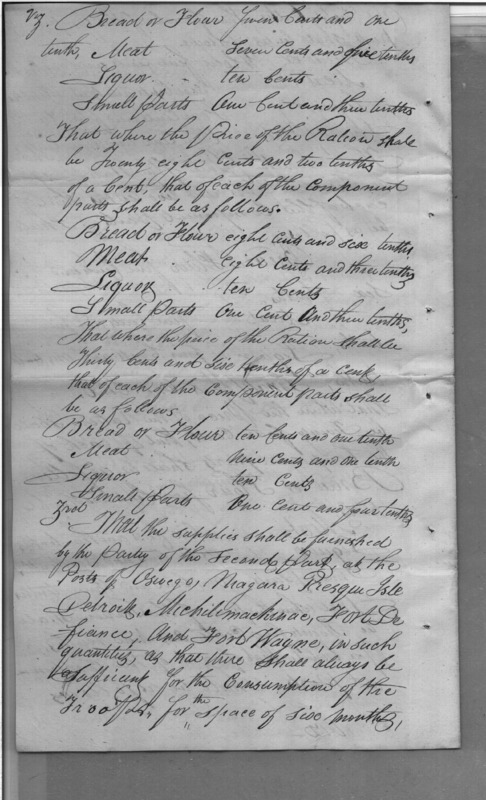 Viz. Bread or Flour seven Cents and one
tenth, Meat Seven Cents and five tenths
Liquor ten Cents
Small Parts One Cent and three tenths
That where the Price of the Ration shall
be Twenty eight Cents and two tenths
of a Cent, that of each of the Component
parts shall be as follows.
Bread or Flour eight Cents and six tenths
Meat eight Cents and three tenths
Liquor ten Cents
Small Parts One Cent and three tenths,
That where the price of the Ration shall be
Thirty Cents and Six tenths of a Cent,
that of each of the Component parts shall
be as follows
Bread or Flour ten Cents and one tenth
Meat Nine Cents and one tenth
Liquor ten Cents
Small Parts One Cent and four tenths
3rd
That the supplies shall be furnished
by the Party of the second Part, at the
Posts of Oswego, Niagara Presqu Isle
Detroit, Michilimackinac, Fort De
fiance, And Fort Wayne, in such
quantities, as that there shall always be
sufficient for the Consumption of the
Troops, for the space of six months,